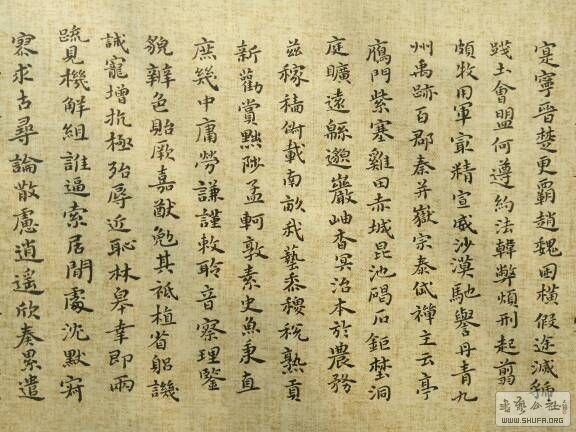 寔寧晉楚更霸趙魏困橫假途滅虢
踐土會盟何遵約法韓弊煩刑起翦
頗牧用軍最精宣威沙漠馳譽丹青九
州禹跡百郡秦并嶽宗泰岱禪主云亭
鴈門紫塞雞田赤城昆池碣石鉅埜洞
庭曠遠緜邈巖岫杳冥治本於農務
茲稼穡俶載南畝我藝黍稷稅熟貢
新勸賞黜陟孟軻敦素史魚秉直
庶幾中庸勞謙謹敕聆音察理鑒
貌辨色貽厥嘉猷勉其祗植省躬譏
誡寵增抗極殆辱近恥林皋幸即兩
疏見機解組誰逼索居閒處沈默寂
寥求古尋論散慮逍遙欣奏累遣
書法公社
WWW.SHUFA.ORG